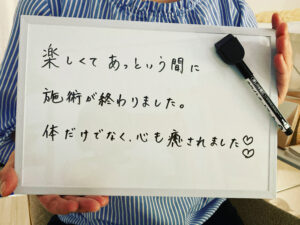 楽しくてあっという間に
施術が終わりました。
体だけでなく、心も癒されました♡♡